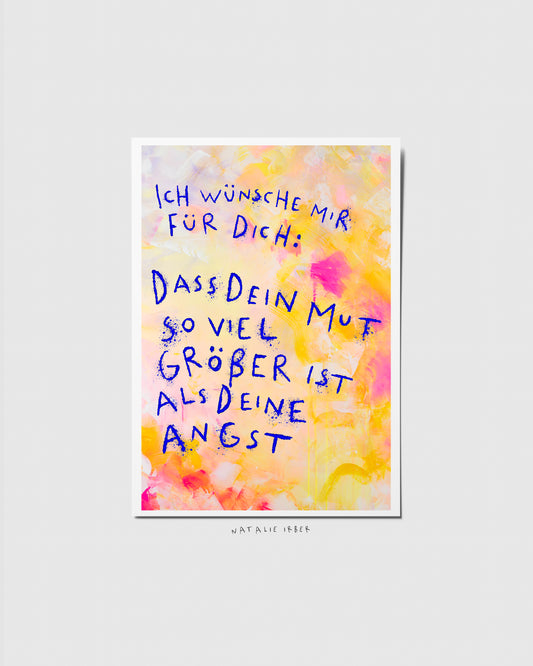 ICH WÜNSCHE MIR
FÜR DICH:
DASS DEIN MUT
SO VIEL
GRÖßER IST
ALS DEINE
ANGST
NATALIE IRBER